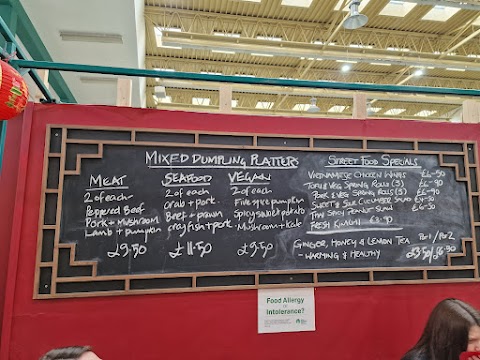 MIXED DUMPLING PLATTERS
MEAT
2 of each
Peppered Beef
Pork + Mushroom
Lamb + pumpkin
£9.50
SEAFOOD
2 of each
Crab + pork
Beef + prawn
crayfish + pork
£11.50
VEGAN
2 of each
Five spice pumpkin
Spicy sweet potato
Mushroom + Kale
£9.50
STREET FOOD SPECIALS
VIETNAMESE CHICKEN WINGS £6-50
TOFU & VEG SPRING ROLLS (3) £6-90
PORK & VEG SPRING ROLLS (3) £6-90
SWEET & SOUR CUCUMBER SALAD
THAI SPICY PEANUT SLAW
FRESH KIMCHI
GINGER, HONEY & LEMON TEA
- WARMING & HEALTHY
Food Allergy
or
Intolerance?